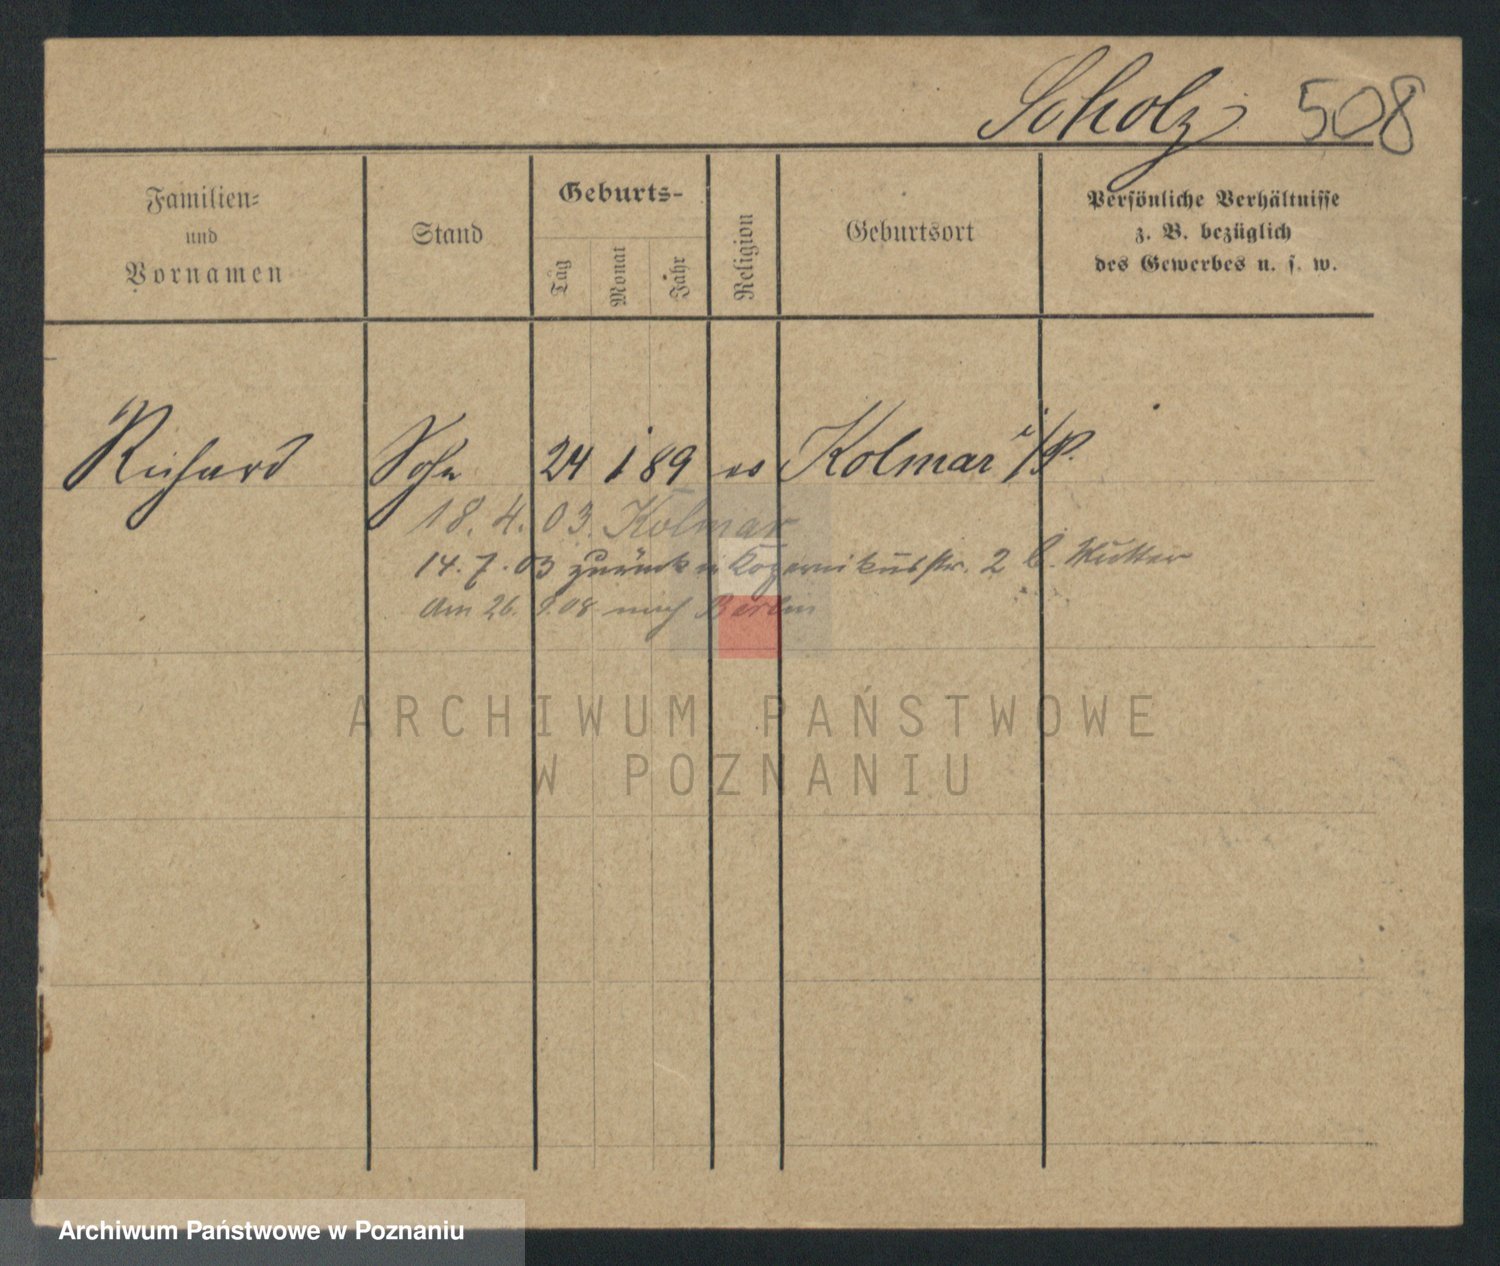 Scholz 508
Familien-
und
Vornamen
Stand
Geburts-
Tag
Monat
Jahr
Religion
Geburtsort
Persönliche Verhältnisse
z. B. bezüglich
des Gewerbes u. s. w.
Richard Sohn 24 1 89 ev Kolmar i/P.
18. 4. 03. Kolmar
14. 7. 03 zurück Kopernikusstr. 2 b. Mutter
Am 26. 9. 08 nach Berlin
ARCHIWUM PAŃSTWOWE
W POZNANIU
Archiwum Państwowe w Poznaniu